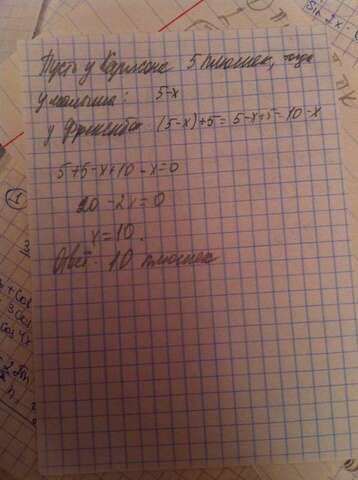 Пусть у Карлсона 5 плюшек, тогда
у малыша: 5-x
у Фрекенбок (5-x)+5=5-x+5=10-x
5+5-x+10-x=0
20-2x=0
x=10.
Ответ: 10 плюшек